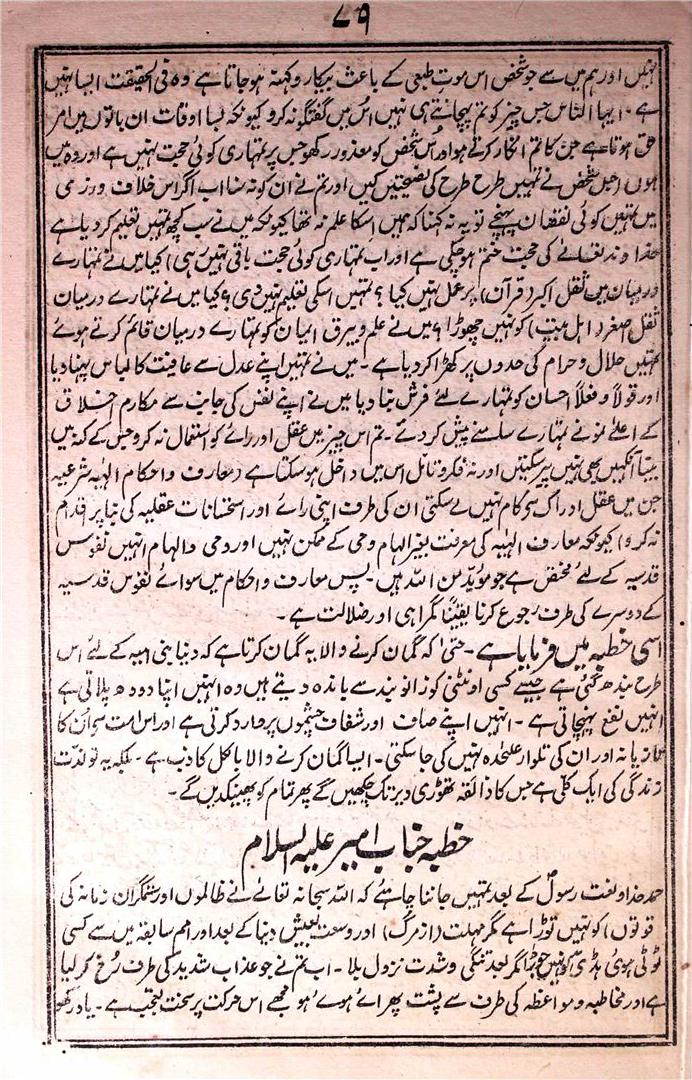 ۷۹
نہیں اور ہم میں سے جو شخص اس موت طبعی کے باعث بیکار و کہنہ ہو جاتا ہے وہ فی الحقیقت ایسا نہیں
ہے۔ ایہا الناس جس چیز کو تم پہچانتے ہی نہیں اس میں گفتگو نہ کرو کیونکہ بسا اوقات ان باتوں میں امر
حق ہوتا ہے جن کا تم انکار کرتے ہو اور اس شخص کو معذور رکھو جس پر تمہاری کوئی حجت نہیں ہے اور وہ میں
ہوں (جس شخص نے تمہیں طرح طرح کی نصیحتیں کیں اور تم نے ان کو نہ سنا اب اگر اس خلاف ورزی
میں تمہیں کوئی نقصان پہنچے تو یہ نہ کہنا کہ ہمیں اسکا علم نہ تھا کیونکہ میں نے سب کچھ تمہیں تعلیم کر دیا ہے
خداوند تعالےٰ کی حجت ختم ہو چکی ہے اور اب تمہاری کوئی حجت باقی نہیں رہی) کیا میں نے تمہارے
درمیان میں ثقل اکبر (قرآن) پر عمل نہیں کیا؟ تمہیں اسکی تعلیم نہیں دی؟ کیا میں نے تمہارے درمیان
ثقل اصغر (اہل بیت) کو نہیں چھوڑا؟ میں نے علم و بیرق ایمان کو تمہارے درمیان قائم کرتے ہوئے
تمہیں حلال و حرام کی حدوں پر کھڑا کر دیا ہے۔ میں نے تمہیں اپنے عدل سے عافیت کا لباس پہنا دیا
اور قولاً و فعلاً احسان کو تمہارے لئے فرش بنا دیا میں نے اپنے نفس کی جانب سے مکارم اخلاق
کے اعلےٰ نمونے تمہارے سامنے پیش کر دئے۔ تم اس چیز میں عقل اور رائے کو استعمال نہ کرو جس کے کنہ میں
بینا آنکھیں بھی نہیں پیر سکتیں اور نہ فکر و تامل اس میں داخل ہو سکتا ہے (معارف و احکام الٰہیہ شرعیہ
جن میں عقل ادراک سے کام نہیں لے سکتی ان کی طرف اپنی رائے اور استحسانات عقلیہ کی بنا پر اقدام
نہ کرو) کیونکہ معارف الٰہیہ کی معرفت بغیر الہام و وحی کے ممکن نہیں اور وحی و الہام انہیں نفوس
قدسیہ کے لئے مختص ہے جو مؤید من اللہ ہیں۔ پس معارف و احکام میں سوائے نفوس قدسیہ
کے دوسرے کی طرف رجوع کرنا یقیناً گمراہی اور ضلالت ہے۔
اسی خطبہ میں فرمایا ہے۔ حتیٰ کہ گمان کرنے والا یہ گمان کرتا ہے کہ دنیا بنی امیہ کے لئے اس
طرح بندھ گئی ہے جیسے کسی اونٹنی کو زانو بند سے باندھ دیتے ہیں وہ انہیں اپنا دودھ پلاتی ہے
انہیں نفع پہنچاتی ہے۔ انہیں اپنے صاف اور شفاف چشموں پر وارد کرتی ہے اور اس امت سے ان کا
تازیانہ اور ان کی تلوار علیٰحدہ نہیں کی جا سکتی۔ ایسا گمان کرنے والا بالکل کاذب ہے۔ بلکہ یہ تو لذت
زندگی کی ایک کلی ہے جس کا ذائقہ تھوڑی دیر تک چکھیں گے پھر تمام کو پھینکدیں گے۔
خطبہ جناب امیر علیہ السلام
حمد خدا و نعت رسولؐ کے بعد تمہیں جاننا چاہئے کہ اللہ سبحانہ تعالےٰ نے ظالموں اور ستمگران زمانہ کی
قوتوں) کو نہیں توڑا ہے مگر مہلت (از مرگ) اور وسعت تعیش دنیا کے بعد اور امم سابقہ میں سے کسی
ٹوٹی ہوئی ہڈی کو نہیں جوڑا مگر بعد تنگی و شدت نزول بلا۔ اب تم نے جو عذاب شدید کی طرف رخ کر لیا
ہے اور مخاطبہ و مواعظہ کی طرف سے پشت پھرائے ہوئے ہو مجھے اس حرکت پر سخت تعجب ہے۔ یاد رکھو